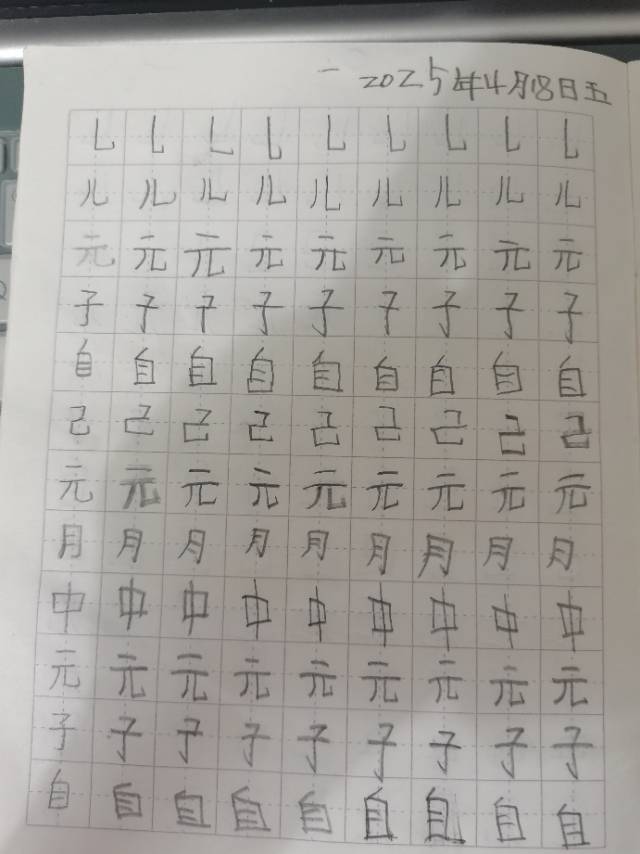 一 2025年4月18日五
乚 乚 乚 乚 乚 乚 乚 乚 乚
儿 儿 儿 儿 儿 儿 儿 儿 儿
元 元 元 元 元 元 元 元 元
子 子 子 子 子 子 子 子 子
自 自 自 自 自 自 自 自 自
己 己 己 己 己 己 己 己 己
元 元 元 元 元 元 元 元 元
月 月 月 月 月 月 月 月 月
中 中 中 中 中 中 中 中 中
元 元 元 元 元 元 元 元 元
子 子 子 子 子 子 子 子 子
自 自 自 自 自 自 自 自 自